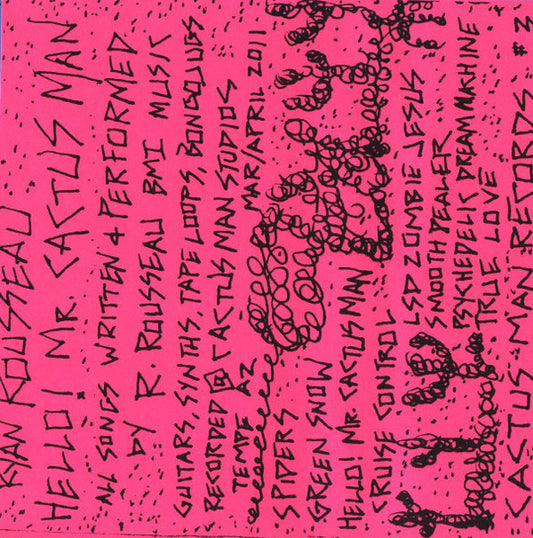 RYAN ROUSSEAU
HELLO! MR. CACTUS MAN
ALL SONGS WRITTEN + PERFORMED
BY R. ROUSSEAU BMI MUSIC
GUITARS, SYNTHS, TAPE LOOPS, BONGOJUGS
RECORDED @ CACTUS MAN STUDIOS
TEMPE AZ MAR/APRIL 2011
SPIDERS
GREEN SNOW
HELLO! MR. CACTUS MAN
CRUISE CONTROL
LSD ZOMBIE JESUS
SMOOTH DEALER
PSYCHEDELIC DREAM MACHINE
TRUE LOVE
CACTUS MAN RECORDS #3